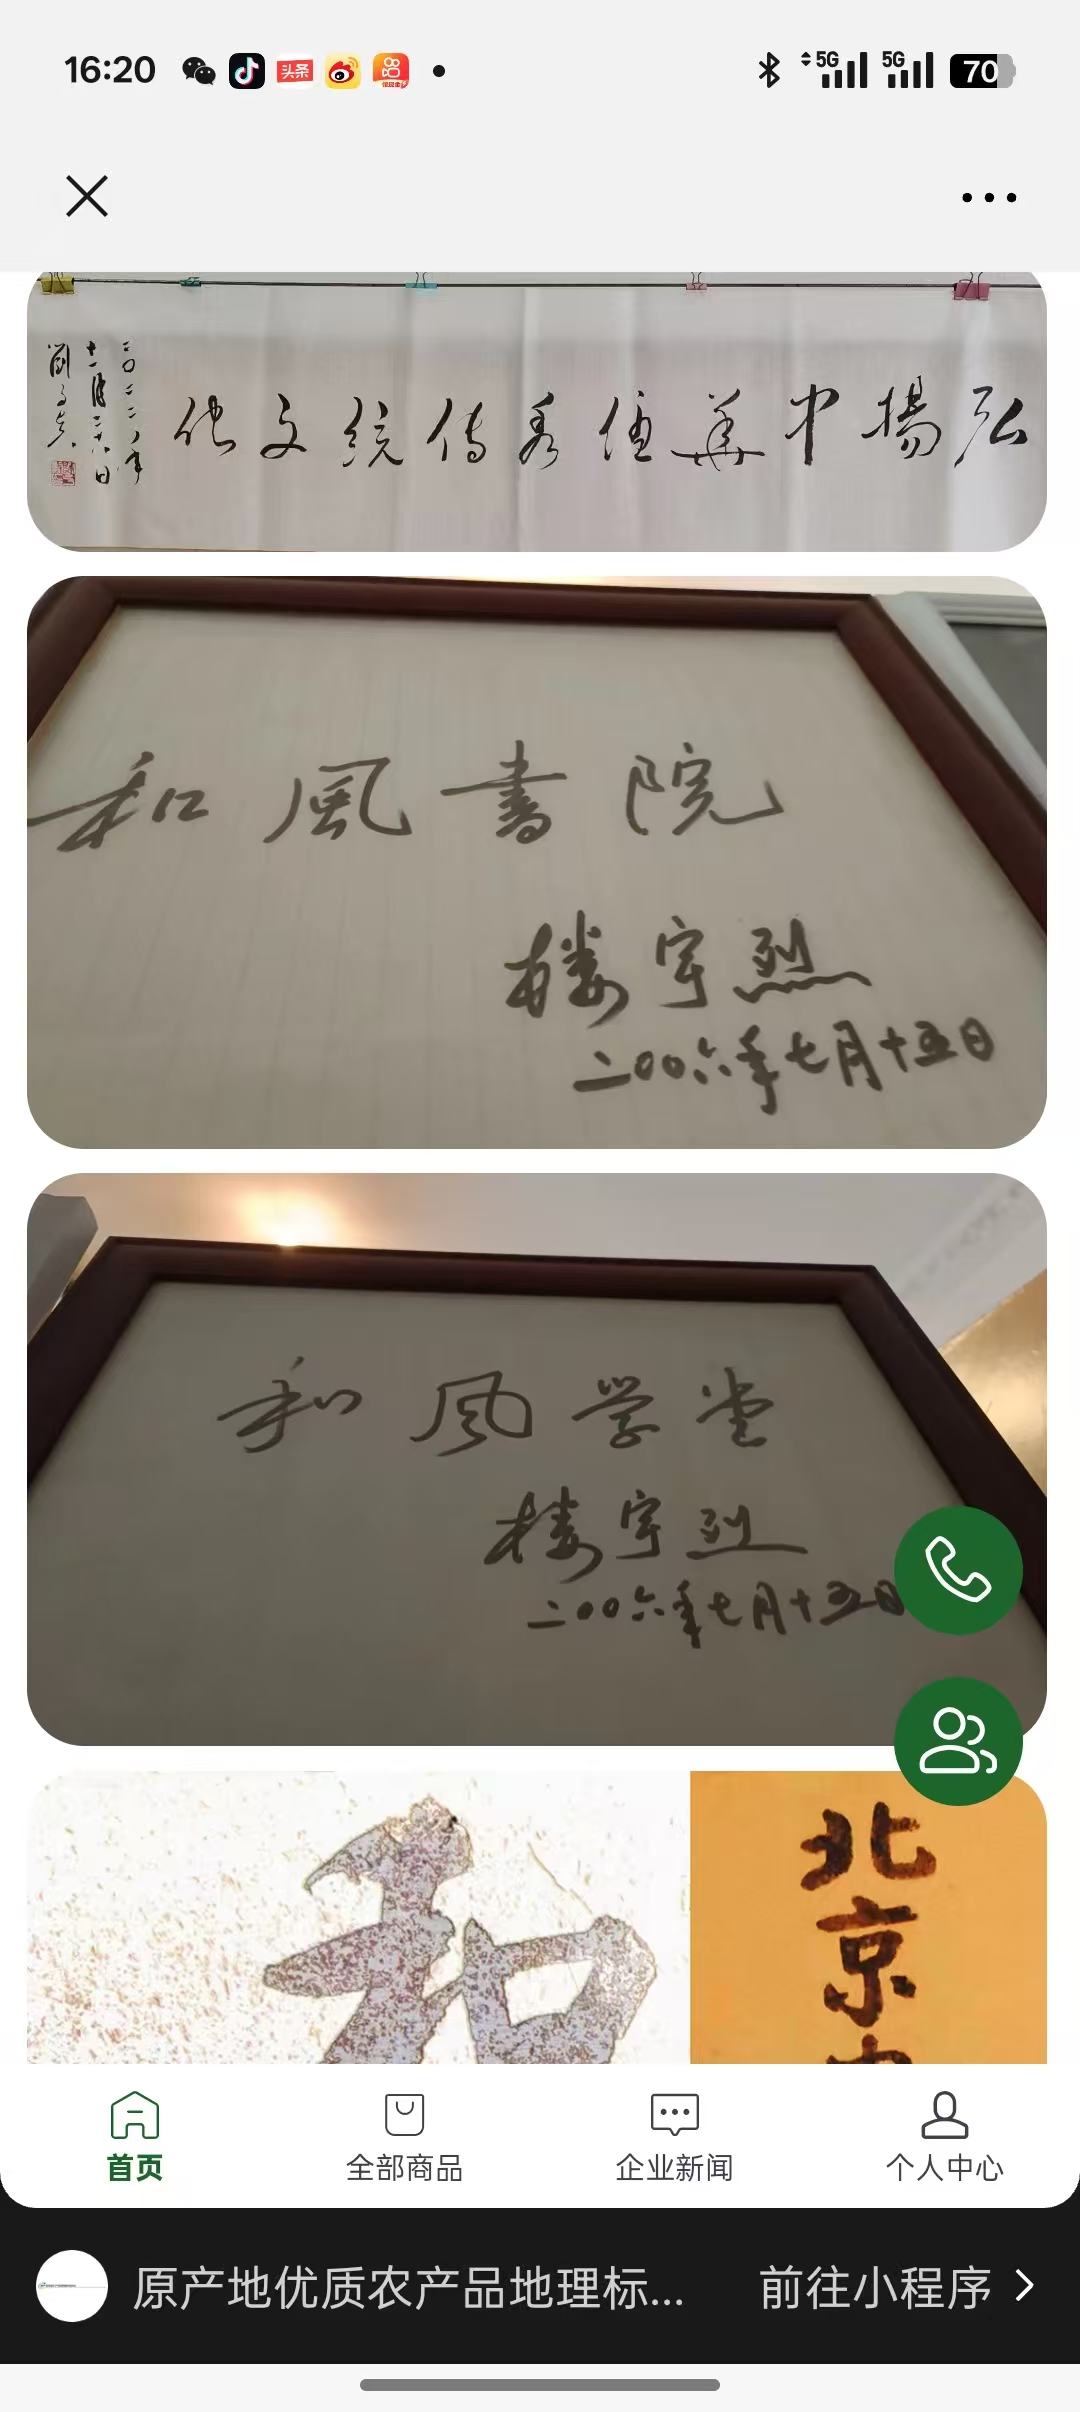 16:20
头条
5G 5G 70
弘揚中華優秀传統文化
二〇二二年
十一月二十八日
和風書院
楼宇烈
二〇〇六年七月十五日
和风学堂
楼宇烈
二〇〇六年七月十五日
和
北京
首页 全部商品 企业新闻 个人中心
原产地优质农产品地理标... 前往小程序